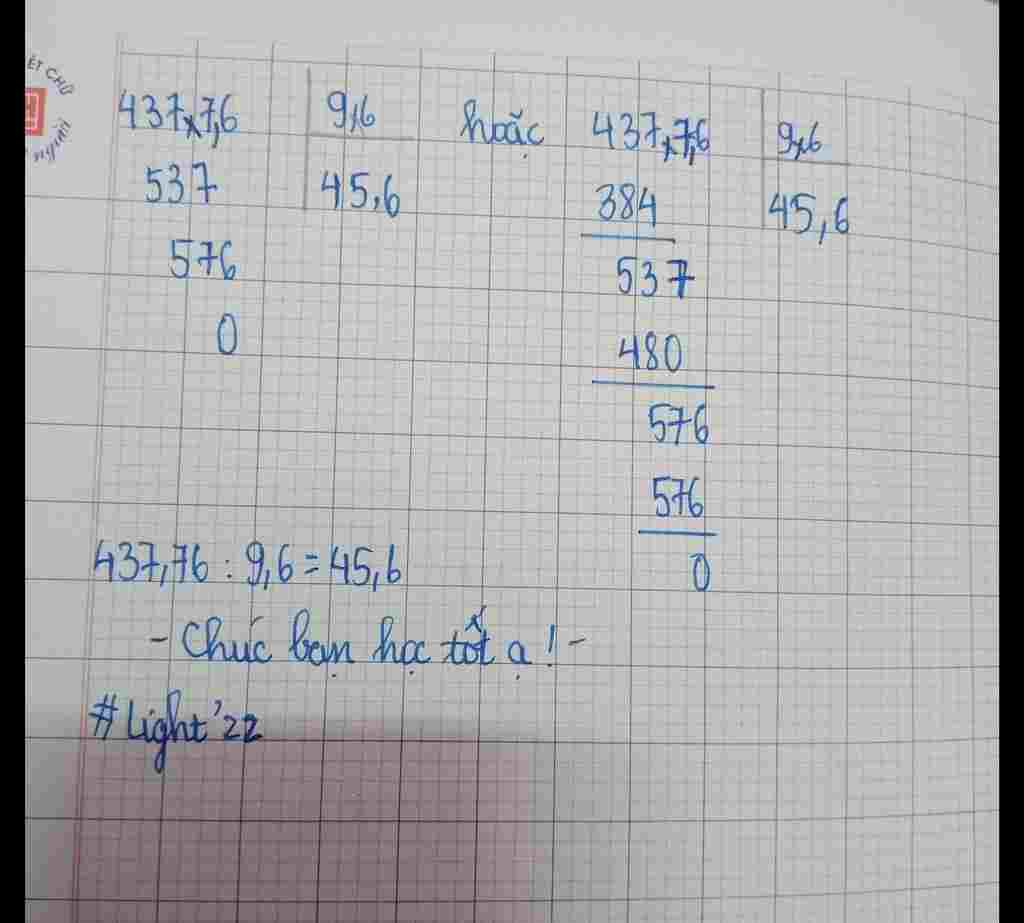 437,7,6 9,6 hoặc 437,7,6 9,6
537 45,6 384 45,6
576 537
0 480
576
576
437,76 : 9,6 = 45,6 0
- Chúc bạn học tốt ạ! -
#Light'22